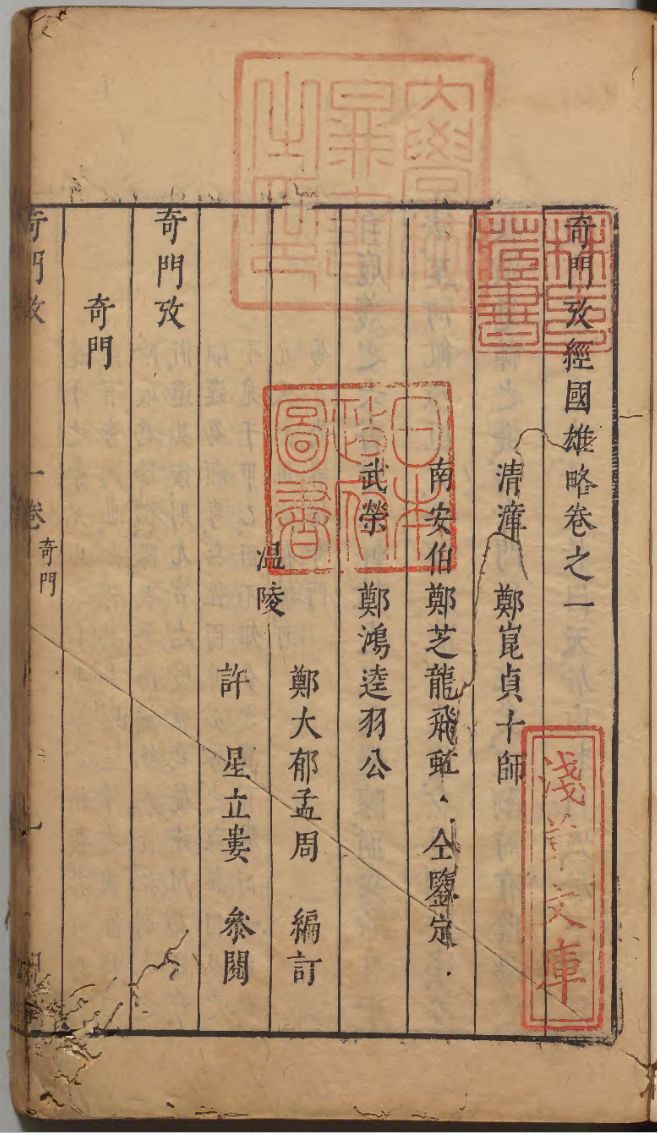 奇門攷經國雄略卷之一
清漳 鄭崑貞十師
南安伯鄭芝龍飛虹 仝鑒定
武榮 鄭鴻逵羽公
温陵
鄭大郁孟周 編訂
許 星立婁 叅閱
奇門攷
奇門
奇門攷 一卷 奇門
林氏藏書
日本政府圖書
淺草文庫